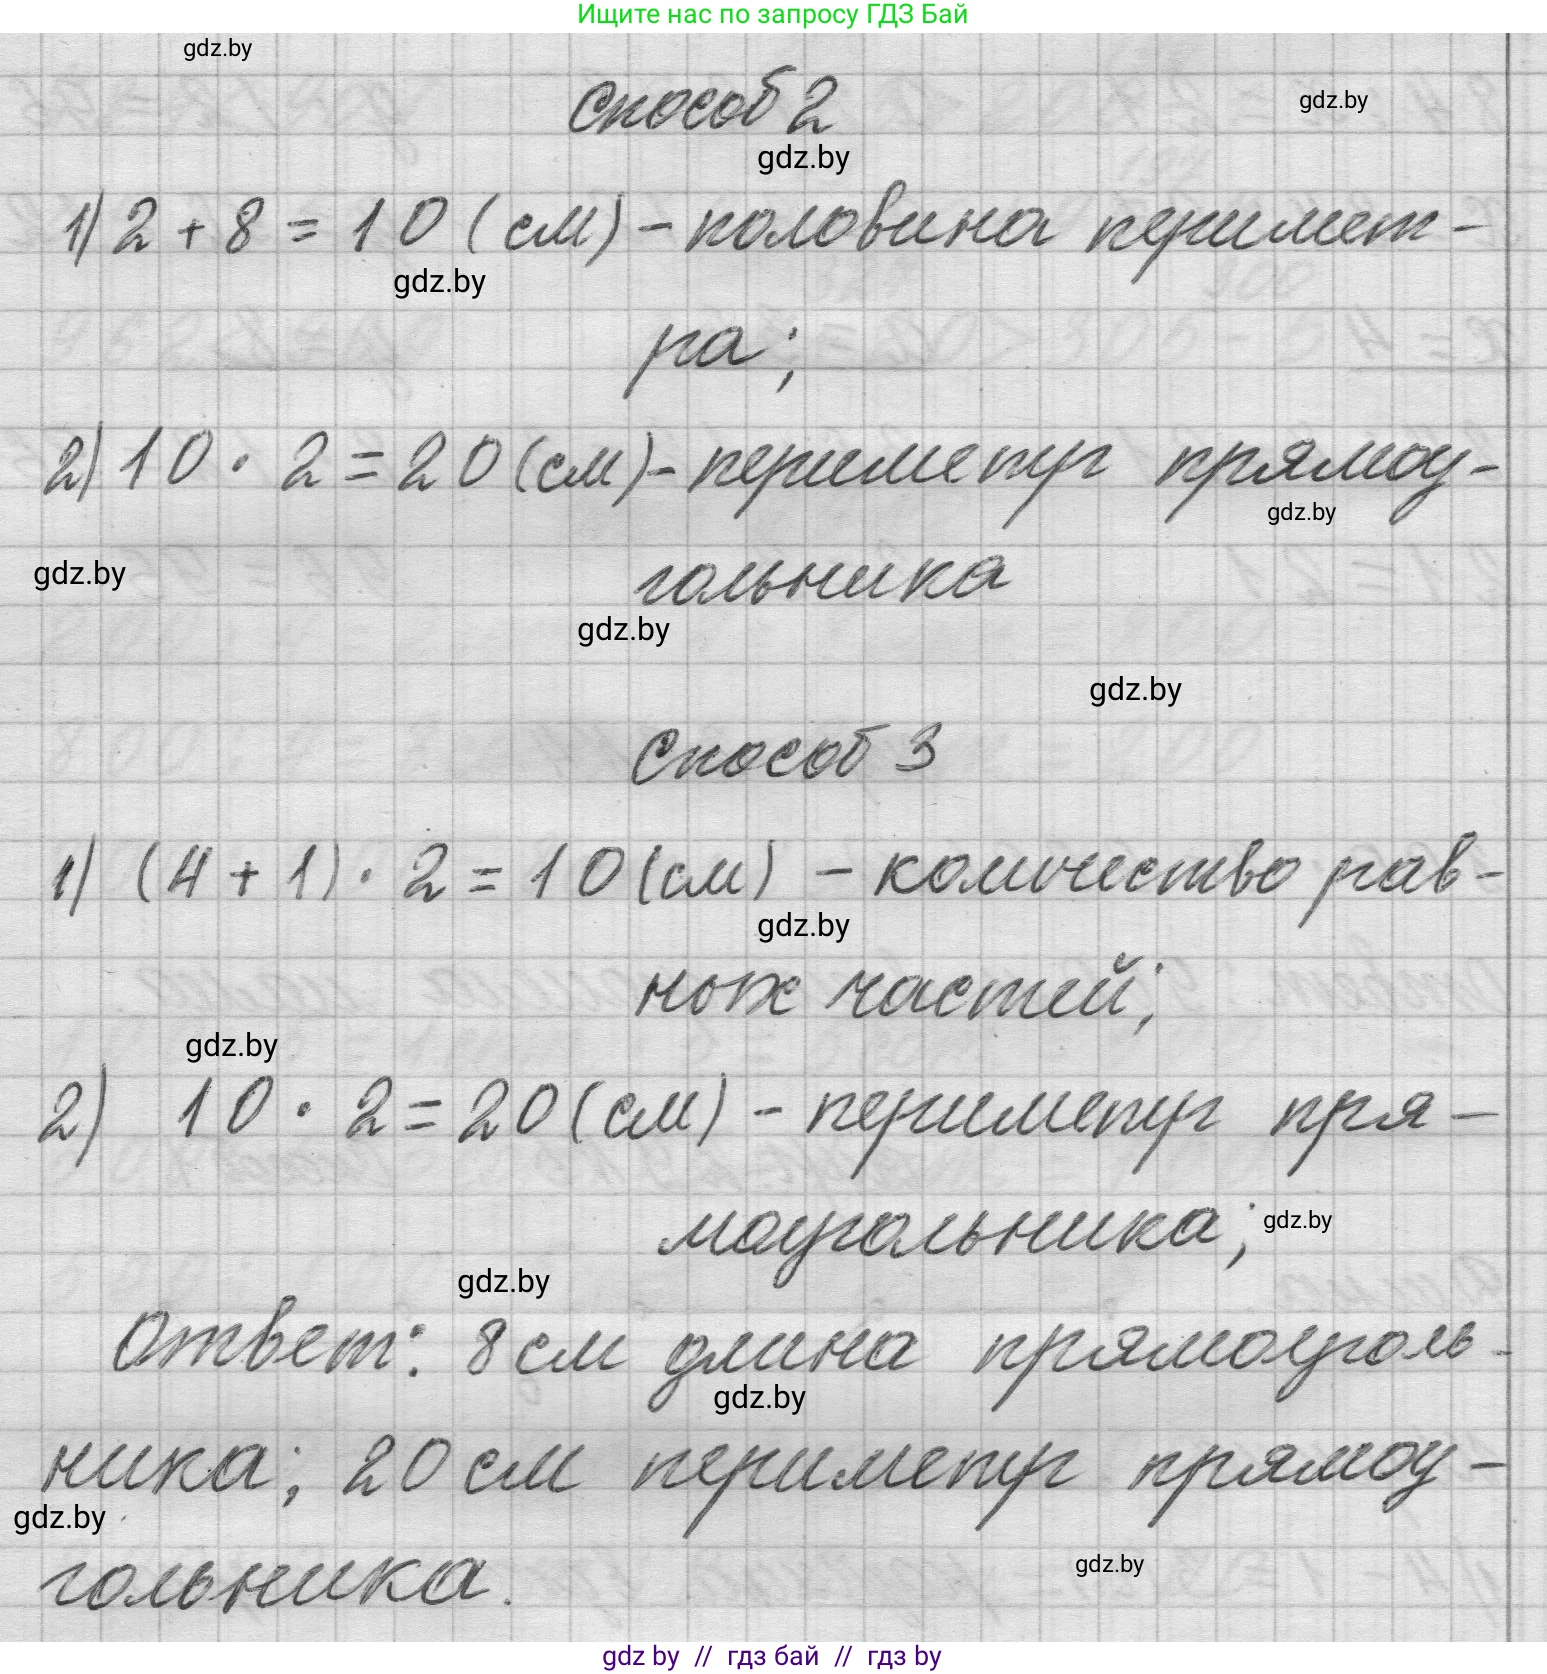 Ищите нас по запросу ГДЗ Бай
gdz.by
gdz.by
Способ 2
gdz.by
1) 2 + 8 = 10 (см) - половина перимет-
gdz.by
ра;
2) 10 · 2 = 20 (см) - периметр прямоу-
gdz.by
gdz.by
гольника
gdz.by
gdz.by
Способ 3
1) (4 + 1) · 2 = 10 (см) - количество рав-
gdz.by
ных частей;
gdz.by
2) 10 · 2 = 20 (см) - периметр пря-
моугольника;
gdz.by
gdz.by
Ответ: 8 см длина прямоуголь-
gdz.by
ника; 20 см периметр прямоу-
gdz.by
гольника.
gdz.by
gdz by // гдз бай // гдз by